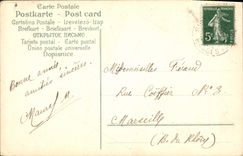 Carte Postale
Postkarte - Post card
Cartolina Postale - Levelező-Lap
Brefkort - Briefkaart - Brevkort
Tarjeta postal - Carta postal
Union postale universelle
Dopisnice
Bonne année,
amitiés sincères
Mesdemoiselles
Rue N° 3
Marseille
(B. du Rhône)